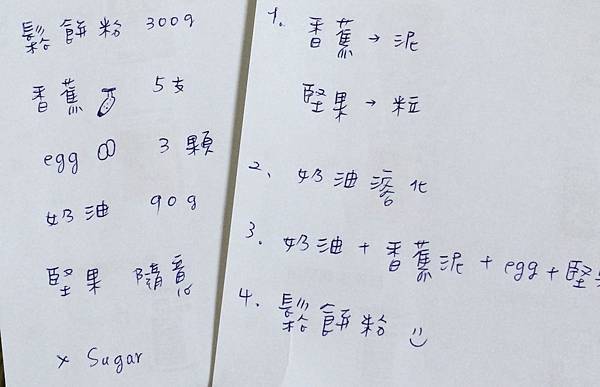 鬆餅粉 300g
香蕉 5支
egg 3顆
奶油 90g
堅果 隨意
x Sugar
1. 香蕉→泥
堅果→粒
2、奶油溶化
3. 奶油+香蕉泥+egg+堅
4. 鬆餅粉